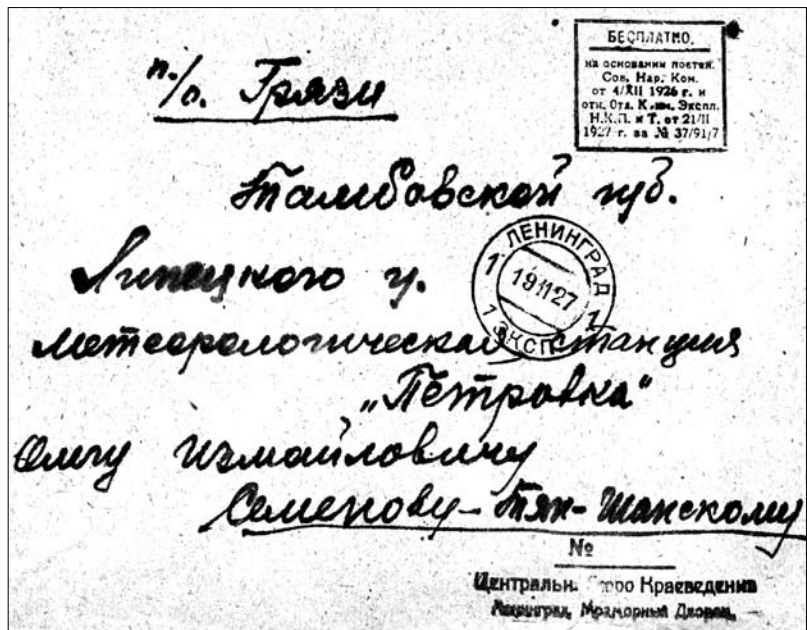 БЕСПЛАТНО.
на основании постан.
Сов. Нар. Ком.
от 4/XII 1926 г. и
отн. Отд. Комм. Экспл.
Н.К.П. и Т. от 21/II
1927 г. за № 37/91/7
п./о. Грязи
Тамбовской губ.
Липецкого у.
ЛЕНИНГРАД
19 11 27
ЭКСП.
метеорологическая станция
„Петровка“
Олегу Измайловичу
Семенову-Тян-Шанскому
№
Центральн. Бюро Краеведения
Ленинград, Мраморный Дворец.